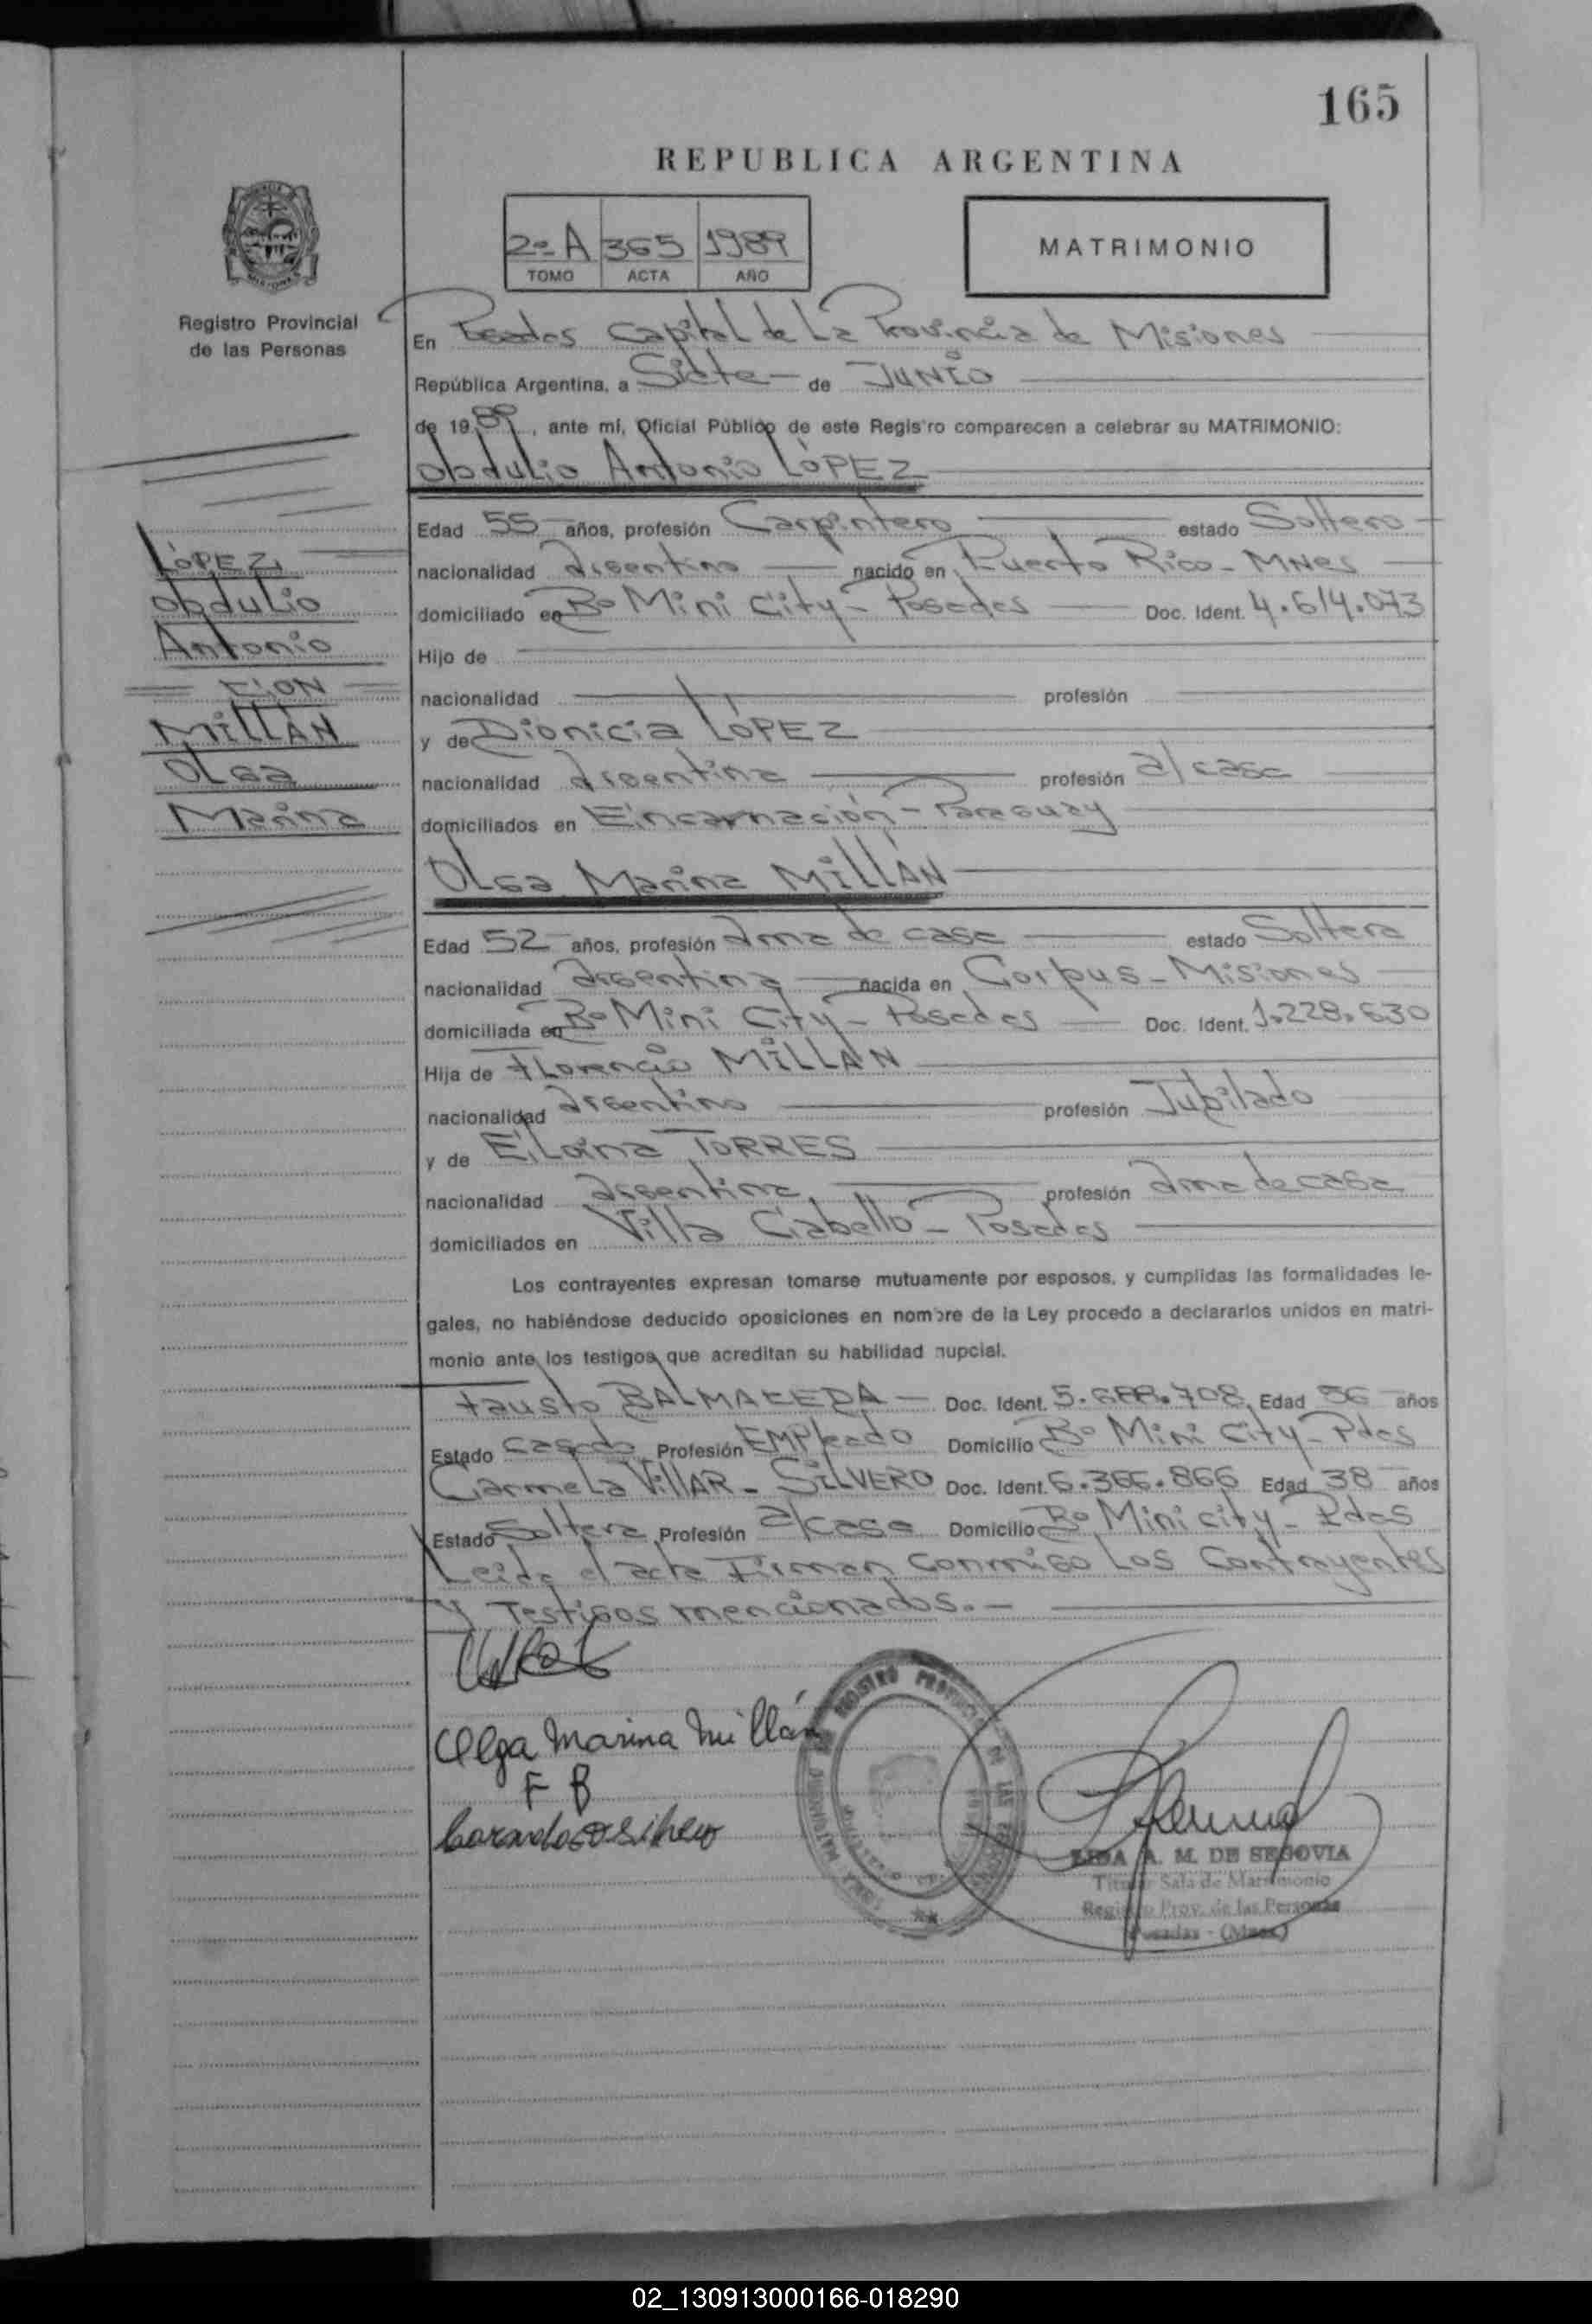 165
REPUBLICA ARGENTINA
2º A 365 1989
TOMO ACTA AÑO
MATRIMONIO
Registro Provincial
de las Personas
En Posadas Capital de La Provincia de Misiones
República Argentina, a Siete de JUNIO
de 1989, ante mí, Oficial Público de este Registro comparecen a celebrar su MATRIMONIO:
Obdulio Antonio LÓPEZ
Edad 55 años, profesión Carpintero estado Soltero
nacionalidad Argentino nacido en Puerto Rico - MNes
domiciliado en Bº Mini City - Posadas Doc. Ident. 4.614.073
Hijo de
nacionalidad profesión
y de Dionicia LÓPEZ
nacionalidad Argentina profesión a/ casa
domiciliados en Encarnación - Paraguay
Olga Marina MILLÁN
Edad 52 años, profesión Ama de casa estado Soltera
nacionalidad Argentina nacida en Corpus - Misiones
domiciliada en Bº Mini City - Posadas Doc. Ident. 1.228.630
Hija de Florencio MILLÁN
nacionalidad Argentino profesión Jubilado
y de TORRES
nacionalidad Argentina profesión Ama de casa
domiciliados en Villa Cabello - Posadas
Los contrayentes expresan tomarse mutuamente por esposos, y cumplidas las formalidades le-
gales, no habiéndose deducido oposiciones en nombre de la Ley procedo a declararlos unidos en matri-
monio ante los testigos que acreditan su habilidad nupcial.
Fausto BALMACEDA - Doc. Ident. Edad 56 años
Estado Casado Profesión EMPleado Domicilio Bº Mini City - Pdas
Carmela VillAR - SILVERO Doc. Ident. 6.366.866 Edad 38 años
Estado Soltera Profesión a/casa Domicilio Bº Mini city - Pdas
Leida el acta Firman conmigo Los Contrayentes
y Testigos mencionados. -
LÓPEZ
Obdulio
Antonio
CON
MILLÁN
OLGA
Marina
Olga Marina Millán
F B
LIDA A. M. DE SEGOVIA
Titular Sala de Matrimonio
Registro Prov. de las Personas
Posadas - (Mnes.)
02_130913000166-018290